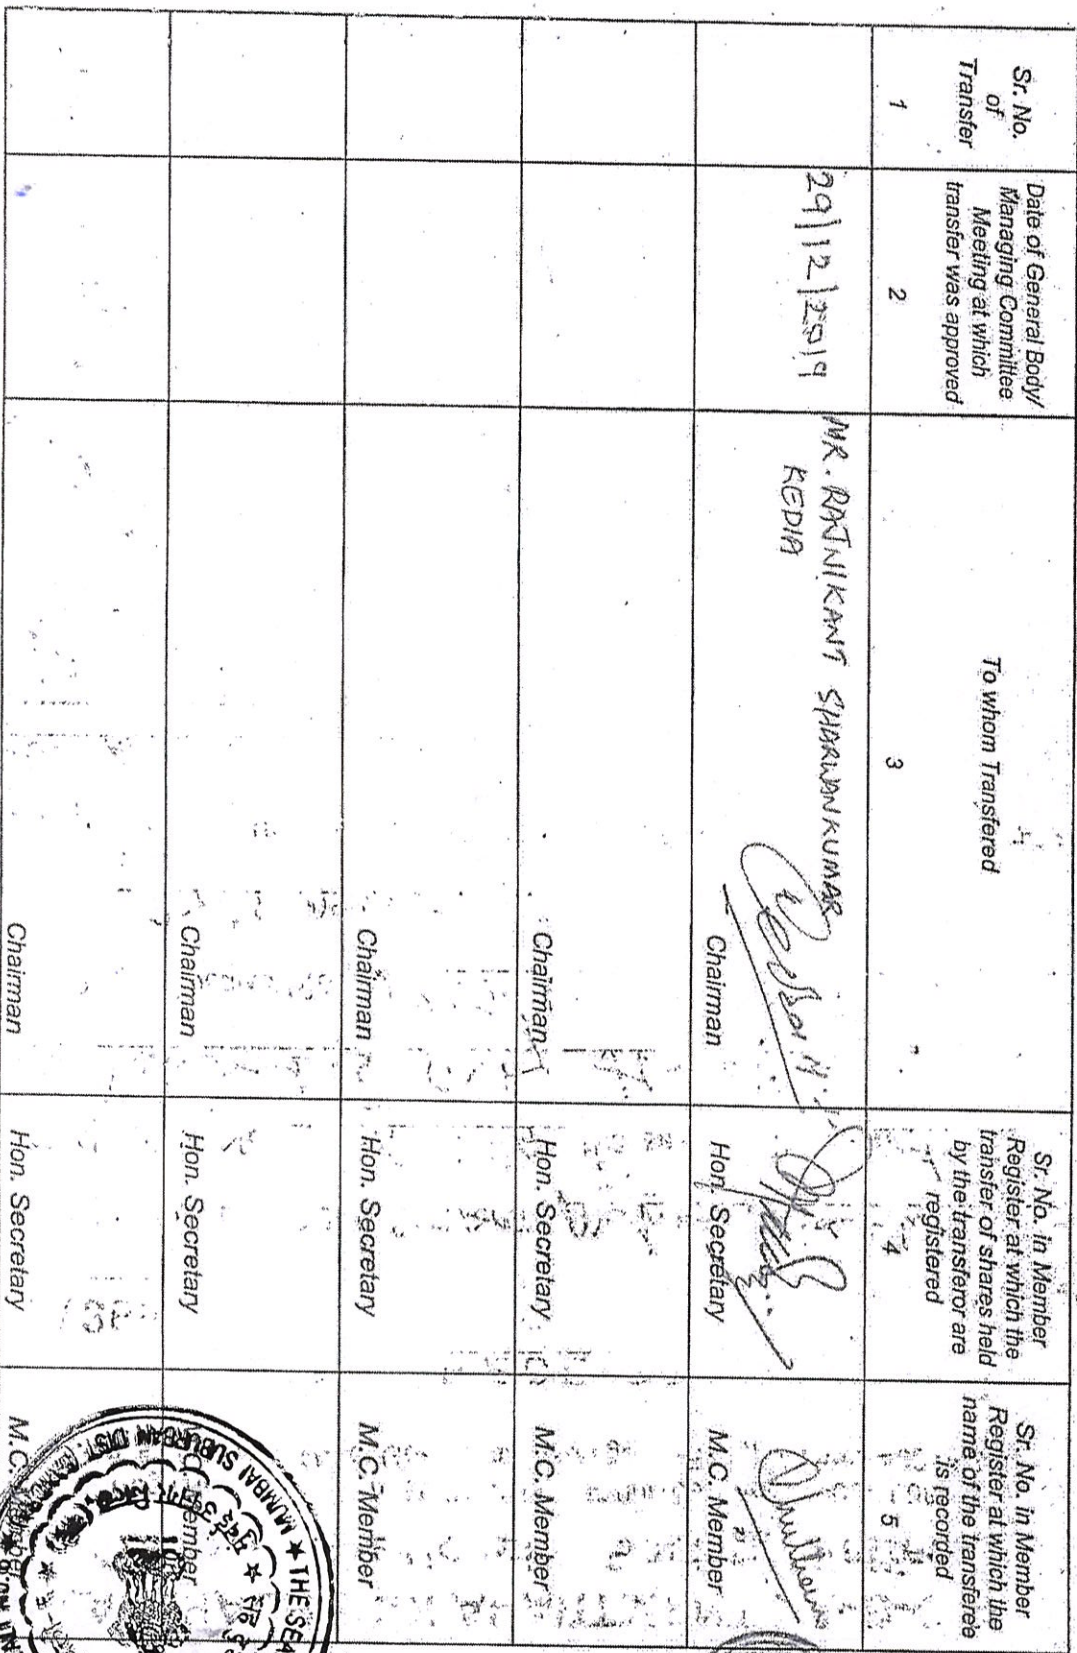 Sr. No.
of
Transfer
1
Date of General Body/
Managing Committee
Meeting at which
transfer was approved
2
To whom Transfered
3
Sr. No. in Member
Register at which the
transfer of shares held
by the transferor are
registered
4
Sr. No. in Member
Register at which the
name of the transferee
is recorded
5
29/12/2019
MR. RAJNIKANT SHARWANKUMAR
KEDIA
Chairman
Hon. Secretary
M.C. Member
Chairman
Hon. Secretary
M.C. Member
Chairman
Hon. Secretary
M.C. Member
Chairman
Hon. Secretary
Member
Chairman
Hon. Secretary
M.C.
★ THE SEA
MUMBAI SUBURBAN DIST.